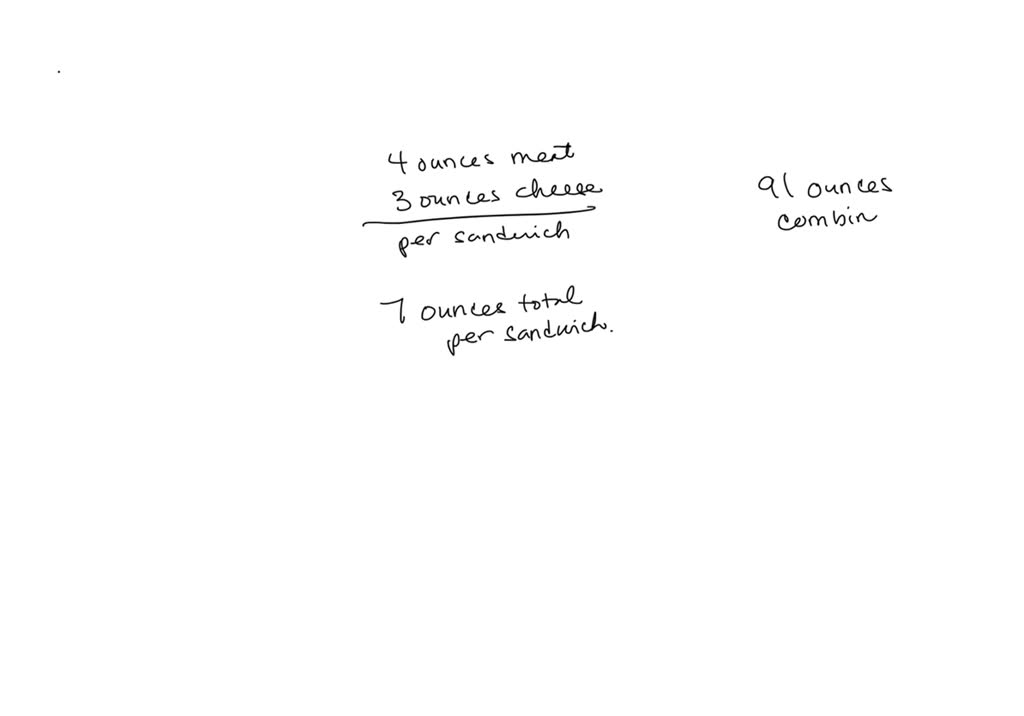 4 ounces meat
3 ounces cheese
per sandwich
7 ounces total
per sandwich.
91 ounces
combin